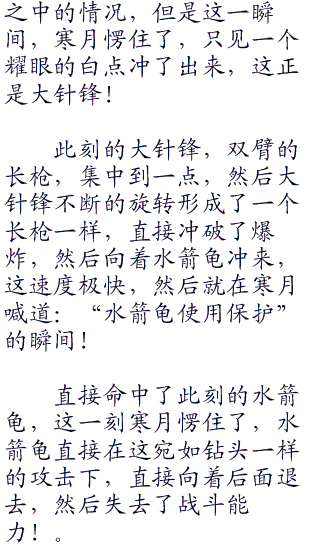 之中的情况，但是这一瞬
间，寒月愣住了，只见一个
耀眼的白点冲了出来，这正
是大针锋！
此刻的大针锋，双臂的
长枪，集中到一点，然后大
针锋不断的旋转形成了一个
长枪一样，直接冲破了爆
炸，然后向着水箭龟冲来，
这速度极快，然后就在寒月
喊道：“水箭龟使用保护”
的瞬间！
直接命中了此刻的水箭
龟，这一刻寒月愣住了，水
箭龟直接在这宛如钻头一样
的攻击下，直接向着后面退
去，然后失去了战斗能
力！。